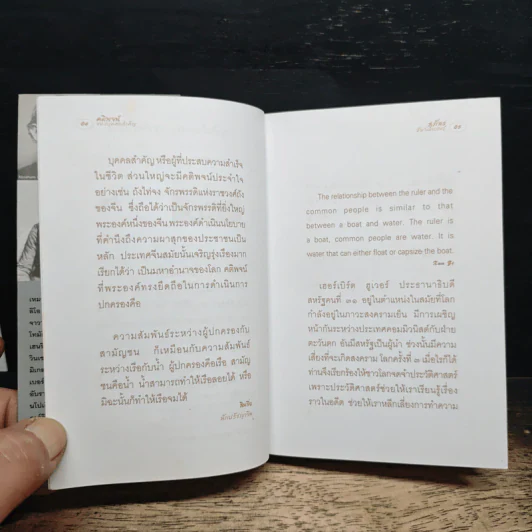 คติพจน์
บุคคลสำคัญ หรือผู้ที่ประสบความสำเร็จ
ในชีวิต ส่วนใหญ่จะมีคติพจน์ประจำใจ
อย่างเช่น ถังไท่จง จักรพรรดิแห่งราชวงศ์ถัง
ของจีน ซึ่งถือได้ว่าเป็นจักรพรรดิที่ยิ่งใหญ่
พระองค์หนึ่งของจีน พระองค์ดำเนินนโยบาย
ที่คำนึงถึงความผาสุกของประชาชนเป็น
หลัก ประเทศจีนสมัยนั้นเจริญรุ่งเรืองมาก
เรียกได้ว่า เป็นมหาอำนาจของโลก คติพจน์
ที่พระองค์ทรงยึดถือในการดำเนินการ
ปกครองคือ
ความสัมพันธ์ระหว่างผู้ปกครองกับ
สามัญชน ก็เหมือนกับความสัมพันธ์
ระหว่างเรือกับน้ำ ผู้ปกครองคือเรือ สามัญ
ชนคือน้ำ น้ำสามารถทำให้เรือลอยได้ หรือ
มิฉะนั้นก็ทำให้เรือจมได้
The relationship between the ruler and the
common people is similar to that
between a boat and water. The ruler is
a boat, common people are water. It is
water that can either float or capsize the boat.
เฮอร์เบิร์ต ฮูเวอร์ ประธานาธิบดี
สหรัฐคนที่ ๓๑ อยู่ในตำแหน่งในสมัยที่โลก
กำลังอยู่ในภาวะสงครามเย็น มีการเผชิญ
หน้ากันระหว่างประเทศคอมมิวนิสต์กับฝ่าย
ตะวันตก อันมีสหรัฐเป็นผู้นำ ช่วงนั้นมีความ
เสี่ยงที่จะเกิดสงคราม โลกครั้งที่ ๓ เมื่อไรก็ได้
ท่านจึงเรียกร้องให้ชาวโลกจดจำประวัติศาสตร์
เพราะประวัติศาสตร์ช่วยให้เราเรียนรู้เรื่อง
ราวในอดีต ช่วยให้เราหลีกเลี่ยงการทำความ